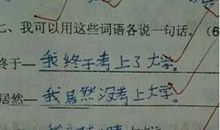 七、我可以用这些词语各说一句话。(6
终于—我终于考上了大学。
居然—我居然没考上大学。